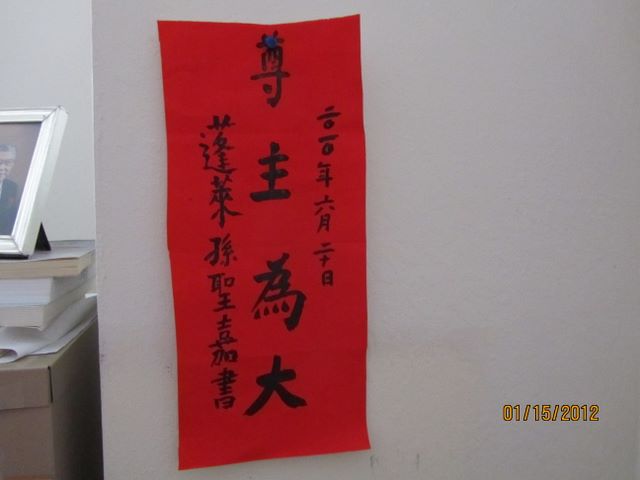 二〇一〇年六月二十日
尊主為大
蓬萊孫聖嘉書
01/15/2012